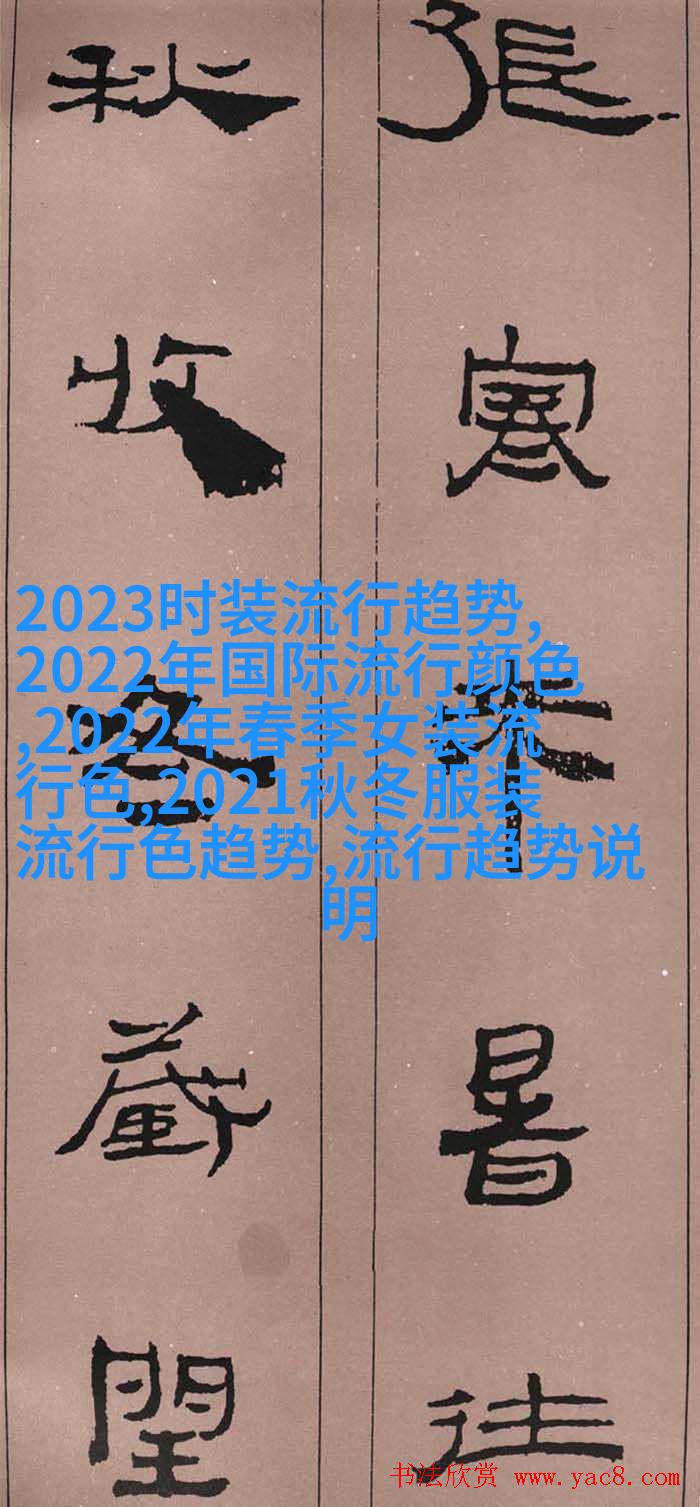 張寒來暑往
秋收冬藏閏
2023时装流行趋势,
2022年国际流行颜色
,2022年春季女装流
行色,2021秋冬服装
流行色趋势,流行趋势说
明
书法欣赏 www.yac8.com